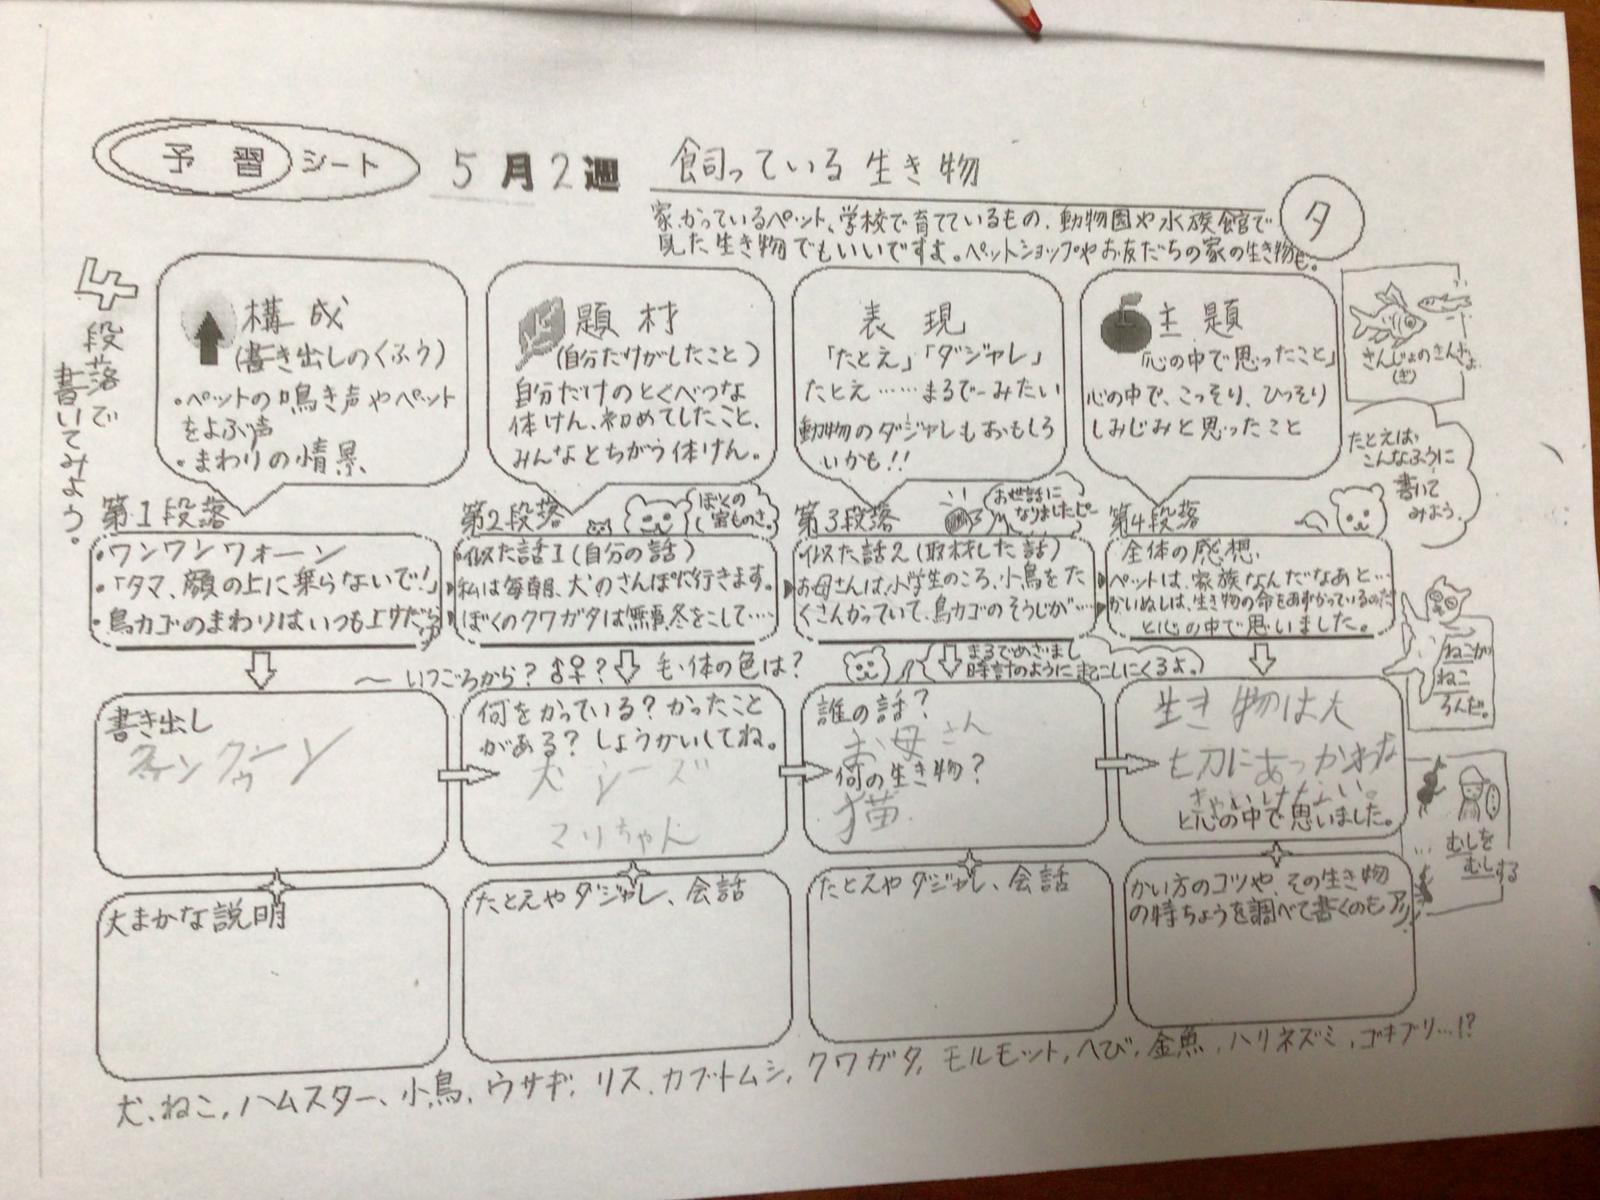 予習シート 5月2週 飼っている生き物
タ
家かっているペット、学校で育てているもの、動物園や水族館で
見た生き物でもいいですす。ペットショップやお友だちの家の生き物も。
4段落で
書いてみよう。
構成
(書き出しのくふう)
・ペットの鳴き声やペット
をよぶ声
・まわりの情景
題材
(自分だけがしたこと)
自分だけのとくべつな
体けん、初めてしたこと、
みんなとちがう体けん。
表現
「たとえ」「ダジャレ」
たとえ……まるでーみたい
動物のダジャレもおもしろ
いかも!!
主題
「心の中で思ったこと」
心の中で、こっそり、ひっそり
しみじみと思ったこと
さんじょのきんぎょ
(ぎ)
たとえば
こんなふうに
書いて
みよう。
第1段落
・ワンワンウォーン
・「タマ、顔の上に乗らないで!」
・鳥カゴのまわりはいつも
第2段落
ぼくの
・似た話1(自分の話)
私は毎朝、犬のさんぽに行きます。
ぼくのクワガタは無事、冬をこして……
第3段落
お世話に
なりましたピー
・似た話2(取材した話)
お母さんは、小学生のころ、小鳥をた
くさんかっていて、鳥カゴのそうじが…
第4段落
全体の感想
ペットは、家族なんだなあと…
かいぬしは、生き物の命をあずかっているのだ
と心の中で思いました。
〜いつごろから?♂♀? 毛・体の色は?
まるでめざまし
時計のように起こしにくるよ。
ねこが
ねこ
ろんだ。
書き出し
何をかっている?かったこと
がある?しょうかいしてね。
犬 シーズ
マリちゃん
誰の話?
お母さん
何の生き物?
猫
生き物は大
切にあつかわな
きゃいけない。
と心の中で思いました。
むしを
むしする
大まかな説明
たとえやダジャレ、会話
たとえやダジャレ、会話
かい方のコツや、その生き物
の特ちょうを調べて書くのもアリ
犬、ねこ、ハムスター、小鳥、ウサギ、リス、カブトムシ、クワガタ、モルモット、へび、金魚、ハリネズミ、ゴキブリ…!?